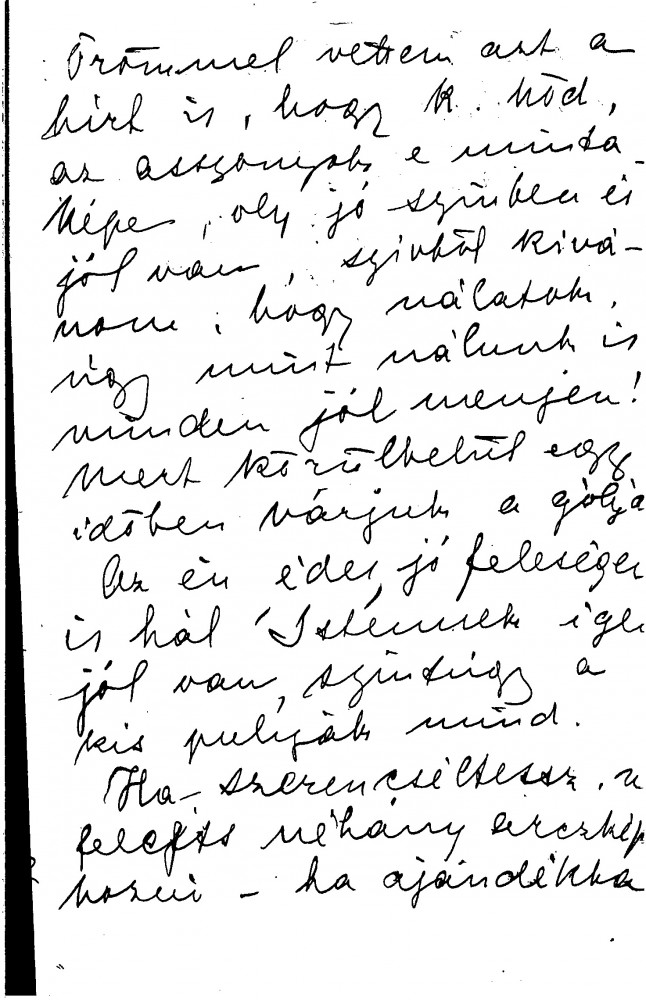 Örömmel vettem azt a
hirt is, hogy k. Nőd,
az asszonyok e minta-
képe, oly jó szinben és
jól van, szivből kivá-
nom, hogy nálatok,
úgy mint nálunk is
minden jól menjen!
Mert körülbelül egy
időben várjuk a gólyá
Az én édes, jó felesége
is hál' Istennek ige
jól van, szintúgy a
kis pulyák mind.
Ha szerencséltetsz, n
felejts néhány arczkép
hozni – ha ajándékba